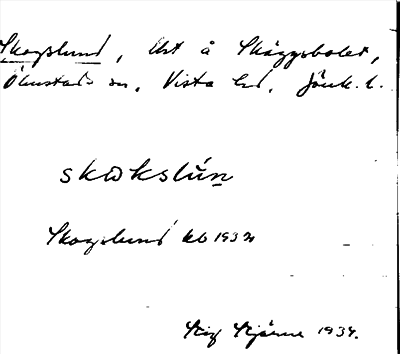 Skogslund, Äst å Skäggsbolet,
Ölmstads sn, Vista hd, Jönk. l.
skɷkslún
Skogslund kb 1932
Stig Stjärne 1934.